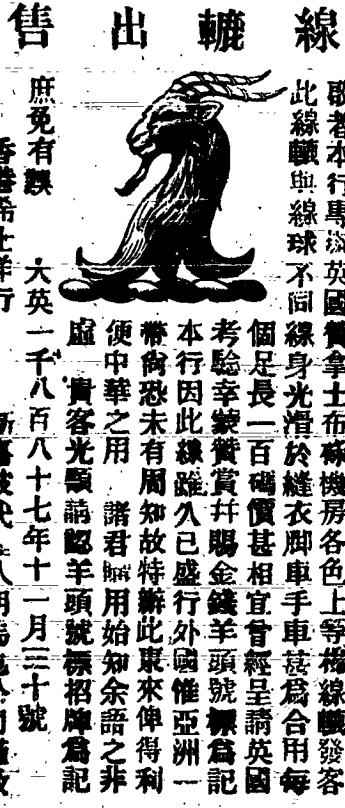 線轆出售
啟者本行專辦英國贊拿士布碌機房各色上等機線轆發客
此線轆與線球不同線身光滑於縫衣脚車手車甚為合用每
個足長一百碼價甚相宜曾經呈請英國
考驗幸蒙贊賞幷賜金錢羊頭號標為記
本行因此線雖久已盛行外國惟亞洲一
帶尙恐未有周知故特辦此東來俾得利
便中華之用 諸君賜用始知余語之非
虛 貴客光顧請認羊頭號標招牌為記
庶免有誤 大英一千八百八十七年十一月三十號
香港希士洋行